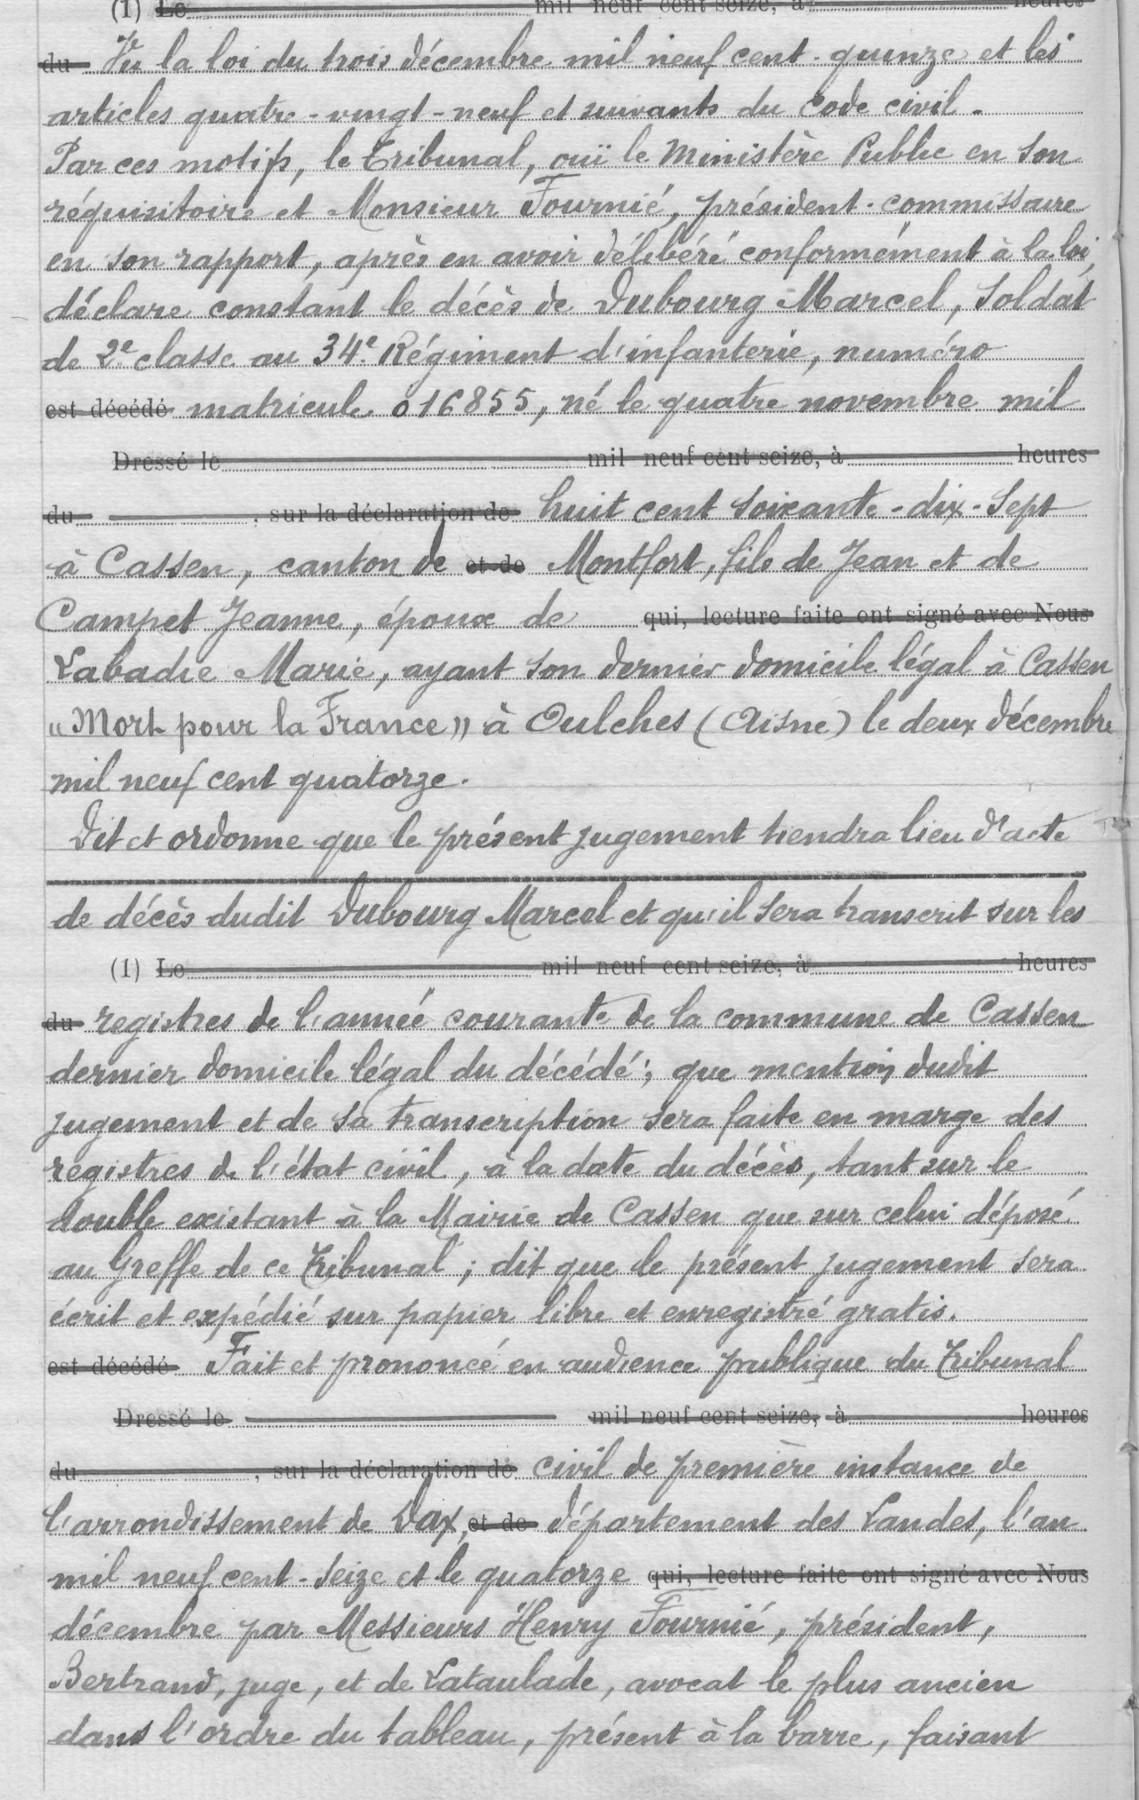 (1) Le mil neuf cent seize, à heures
du Vu la loi du trois décembre mil neuf cent-quinze et les
articles quatre-vingt-neuf et suivants du code civil.
Par ces motifs, le Tribunal, ouï le Ministère Public en son
réquisitoire et Monsieur Fournié, président-commissaire
en son rapport, après en avoir délibéré conformément à la loi,
déclare constant le décès de Dubourg Marcel, soldat
de 2e classe au 34e Régiment d'infanterie, numéro
est décédé matricule 016855, né le quatre novembre mil
Dressé le mil neuf cent seize, à heures
du , sur la déclaration de huit cent soixante-dix-sept
à Cassen, canton de et de Montfort, fils de Jean et de
Campet Jeanne, époux de qui, lecture faite ont signé avec Nous
Labadie Marie, ayant son dernier domicile légal à Cassen
"Mort pour la France" à Oulches (Aisne) le deux décembre
mil neuf cent quatorze.
Dit et ordonne que le présent jugement tiendra lieu d'acte
de décès dudit Dubourg Marcel et qu'il sera transcrit sur les
(1) Le mil neuf cent seize, à heures
du registres de l'année courante de la commune de Cassen
dernier domicile légal du décédé; que mention dudit
jugement et de sa transcription sera faite en marge des
registres de l'état civil, à la date du décès, tant sur le
double existant à la Mairie de Cassen que sur celui déposé
au Greffe de ce Tribunal; dit que le présent jugement sera
écrit et expédié sur papier libre et enregistré gratis.
est décédé Fait et prononcé en audience publique du Tribunal
Dressé le mil neuf cent seize, à heures
du , sur la déclaration de civil de première instance de
l'arrondissement de Dax, et de département des Landes, l'an
mil neuf cent-seize et le quatorze qui, lecture faite ont signé avec Nous
décembre par Messieurs Henry Fournié, président,
Bertrand, juge, et de Lataulade, avocat le plus ancien
dans l'ordre du tableau, présent à la barre, faisant